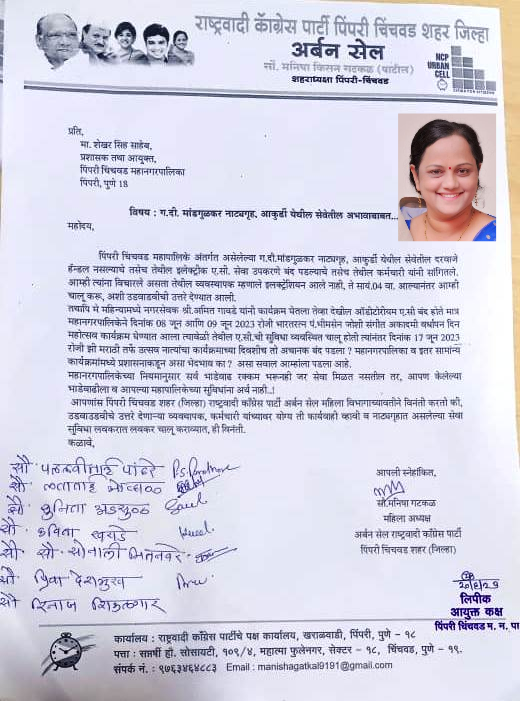 राष्ट्रवादी काँग्रेस पार्टी पिंपरी चिंचवड शहर जिल्हा
अर्बन सेल
सौ. मनिषा किसन गटकळ (पाटील)
शहराध्यक्षा पिंपरी-चिंचवड
NCP
URBAN
CELL
प्रति,
मा. शेखर सिंह साहेब,
प्रशासक तथा आयुक्त,
पिंपरी चिंचवड महानगरपालिका
पिंपरी, पुणे 18
विषय : ग.दी. मांडगुळकर नाट्यगृह, आकुर्डी येथील सेवेतील अभावाबाबत...
महोदय,
पिंपरी चिंचवड महापालिके अंतर्गत असेलेल्या ग.दी.मांडगुळकर नाट्यगृह, आकुर्डी येथील सेवेतील दरवाजे
हॅन्डल नसल्याचे तसेच तेथील इलेक्ट्रीक ए.सी. सेवा उपकरणे बंद पडल्याचे तसेच तेथील कर्मचारी यांनी सांगितले.
आम्ही त्यांना विचारले असता तेथील व्यवस्थापक म्हणाले इलक्ट्रेशियन आले नाही, ते सायं.04 वा. आल्यानंतर आम्ही
चालू करू, अशी उडवाडवीची उत्तरे देण्यात आली.
तथापि मे महिन्यामध्ये नगरसेवक श्री.अमित गावडे यांनी कार्यक्रम घेतला तेव्हा देखील ऑडोटोरीयम ए.सी बंद होते मात्र
महानगरपालिकेने दिनांक 08 जून आणि 09 जून 2023 रोजी भारतरत्न पं.भीमसेन जोशी संगीत अकादमी वर्धापन दिन
महोत्सव कार्यक्रम घेण्यात आला त्यावेळी तेथील ए.सी.ची सुविधा व्यवस्थित चालू होती त्यांनतर दिनांक 17 जून 2023
रोजी झी मराठी तर्फे उत्सव नात्यांचा कार्यक्रमाच्या दिवशीच तो अचानक बंद पडला ? महानगरपालिका व इतर सामान्य
कार्यक्रमांमध्ये प्रशासनाकडून असा भेदभाव का ? असा सवाल आम्हांला पडला आहे.
महानरगपालिकेच्या नियमानुसार सर्व भाडेवाड रक्कम भरूनही जर सेवा मिळत नसतील तर, आपण केलेल्या
भाडेवाढीला व आपल्या महापालिकेच्या सुविधांना अर्थ नाही..!
आपणांस पिंपरी चिंचवड शहर (जिल्हा) राष्ट्रवादी काँग्रेस पार्टी अर्बन सेल महिला विभागाच्यावतीने विनंती करतो की,
उडवाउडवीचे उत्तरे देणाऱ्या व्यवथापक, कर्मचारी यांच्यावर योग्य ती कार्यवाही व्हावी व नाट्यगृहात असलेल्या सेवा
सुविधा लवकरात लवकर चालू कराव्यात, ही विनंती.
कळावे,
सौ. पल्लवीताई पांढरे
सौ. लताताई
सौ. सुनिता अडसुळ
सौ. कविता खराडे
सौ. सौ. सोनाली
सौ. प्रिया देशमुख
सौ
आपली स्नेहांकित,
सौ.मनिषा गटकळ
महिला अध्यक्ष
अर्बन सेल राष्ट्रवादी काँग्रेस पार्टी
पिंपरी चिंचवड शहर (जिल्हा)
लिपीक
आयुक्त कक्ष
पिंपरी चिंचवड म. न. पा
कार्यालय : राष्ट्रवादी काँग्रेस पार्टीचे पक्ष कार्यालय, खराळवाडी, पिंपरी, पुणे - १८
पत्ता : सप्तर्षी हौ. सोसायटी, १०९/४, महात्मा फुलेनगर, सेक्टर - १८, चिंचवड, पुणे - १९.
संपर्क नं. : ९७६३४६४८८३ Email : manishagatkal9191@gmail.com